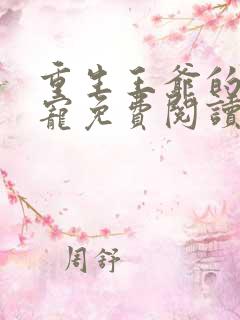 重生王爺的
寵免費閱讀
周舒